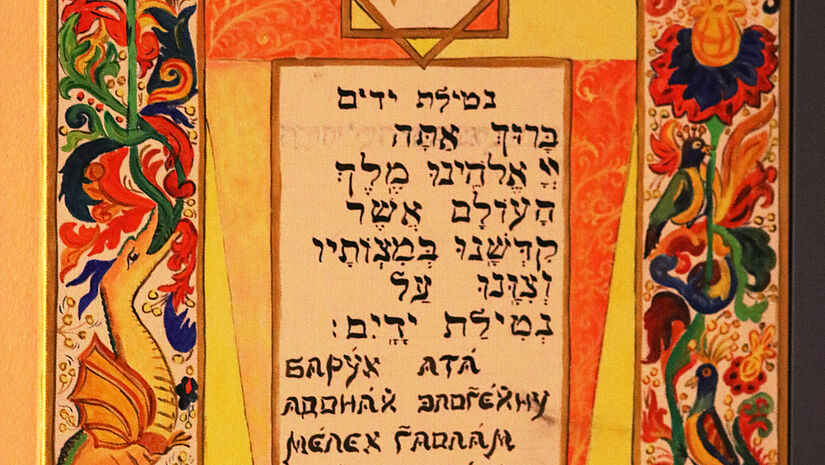 נטילת ידים
בָּרוּךְ אַתָּה
יְיָ אֱלֹהֵינוּ מֶלֶךְ
הָעוֹלָם אֲשֶׁר
קִדְּשָׁנוּ בְּמִצְוֹתָיו
וְצִוָּנוּ עַל
נְטִילַת יָדָיִם:
БАРУ́Х АТА́
АДОНА́Й ЭЛОГ̄Е́ЙНУ
МЕ́ЛЕХ Г̄АОЛА́М